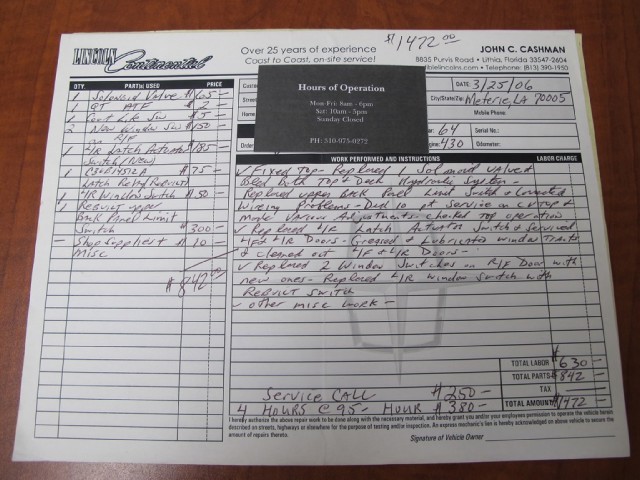 $1472.00
LINCOLN Continental
Over 25 years of experience
Coast to Coast, on-site service!
JOHN C. CASHMAN
8835 Purvis Road • Lithia, Florida 33547-2604
Telephone: (813) 390-1950
Hours of Operation
Mon-Fri: 8am - 6pm
Sat: 10am - 5pm
Sunday Closed
PH: 510-073-0272
DATE 3/25/06
City/State/Zip: Meterie, LA 70005
Mobile Phone:
Year: 64 Serial No.:
430
QTY. PART(s) USED PRICE
1 Solonoid Valve $65-
1 QT ATF $2-
1 Cort Life SW $5-
2 New Window SW $150-
in R/F
1 L/R Latch Actuator $185-
Switch (New)
1 $75-
Latch Relay Rebuilt
1 L/R Window Switch $50-
1 Rebuilt upper
Back Panel Limit
Switch $300-
- Shop Supplies & $10-
Misc
$842.00
WORK PERFORMED AND INSTRUCTIONS LABOR CHARGE
✓ Fixed Top- Replaced 1 Solonoid valve &
Bled both Top & Deck Hydraulic System-
Replaced upper Back Panel Limit Switch & Corrected
Wiring Problems- Did 10 pt service on CV top &
made Various Adjustments- checked top operation
✓ Replaced L/R Latch Actuator Switch & Serviced
L/F & L/R Doors- Greased & Lubricated window Tracks
& cleaned out L/F & L/R Doors-
✓ Replaced 2 Window Switches on R/F Door with
new ones- Replaced L/R window switch with
Rebuilt switch
✓ other misc work-
TOTAL LABOR $630-
TOTAL PARTS $842-
TAX
TOTAL AMOUNT $1472-
Service CALL $250-
4 HOURS @ 95- HOUR $380-
I hereby authorize the above repair work to be done along with the necessary material, and hereby grant you and/or your employees permission to operate the vehicle herein
described on streets, highways or elsewhere for the purpose of testing and/or inspection. An express mechanic's lien is hereby acknowledged on above vehicle to secure the
amount of repairs thereto.
Signature of Vehicle Owner